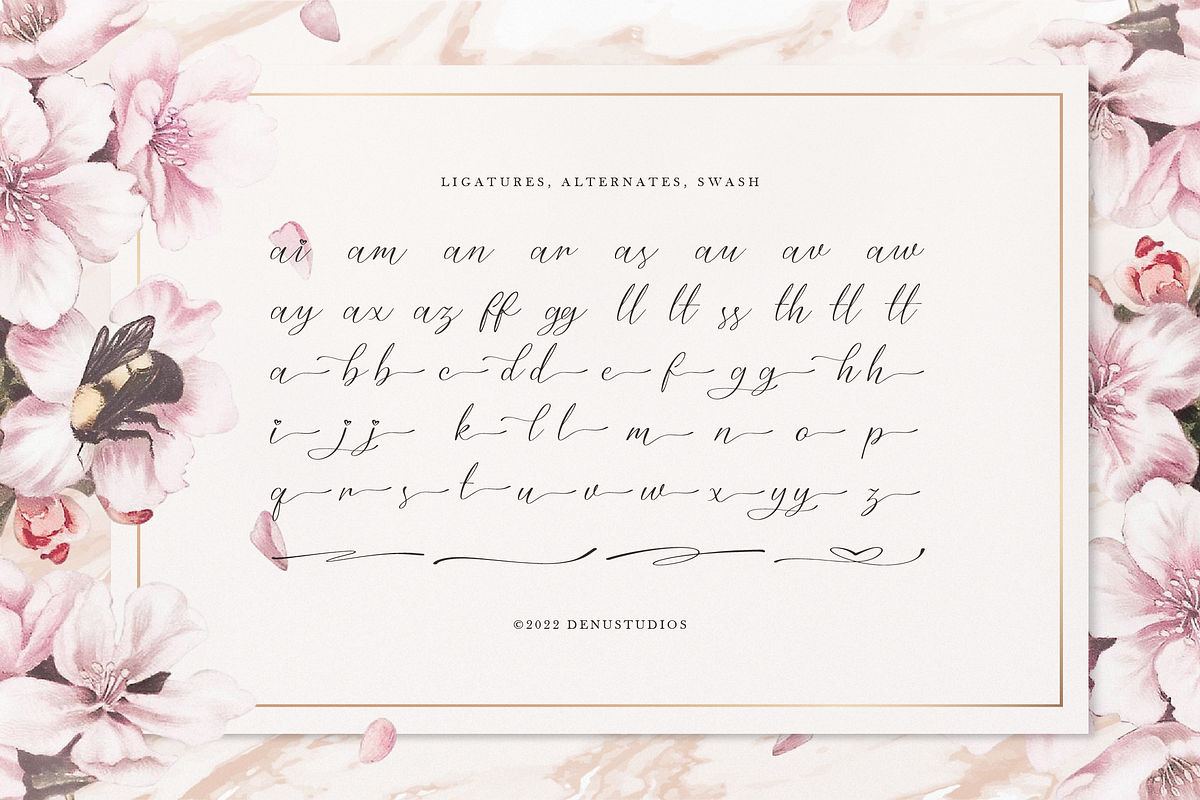 LIGATURES, ALTERNATES, SWASH
ai am an ar as au av aw
ay ax az ff gg ll lt ss th tl tt
a bb c dd e f gg hh
i jj k ll m n o p
q r s t u v w x yy z
©2022 DENUSTUDIOS